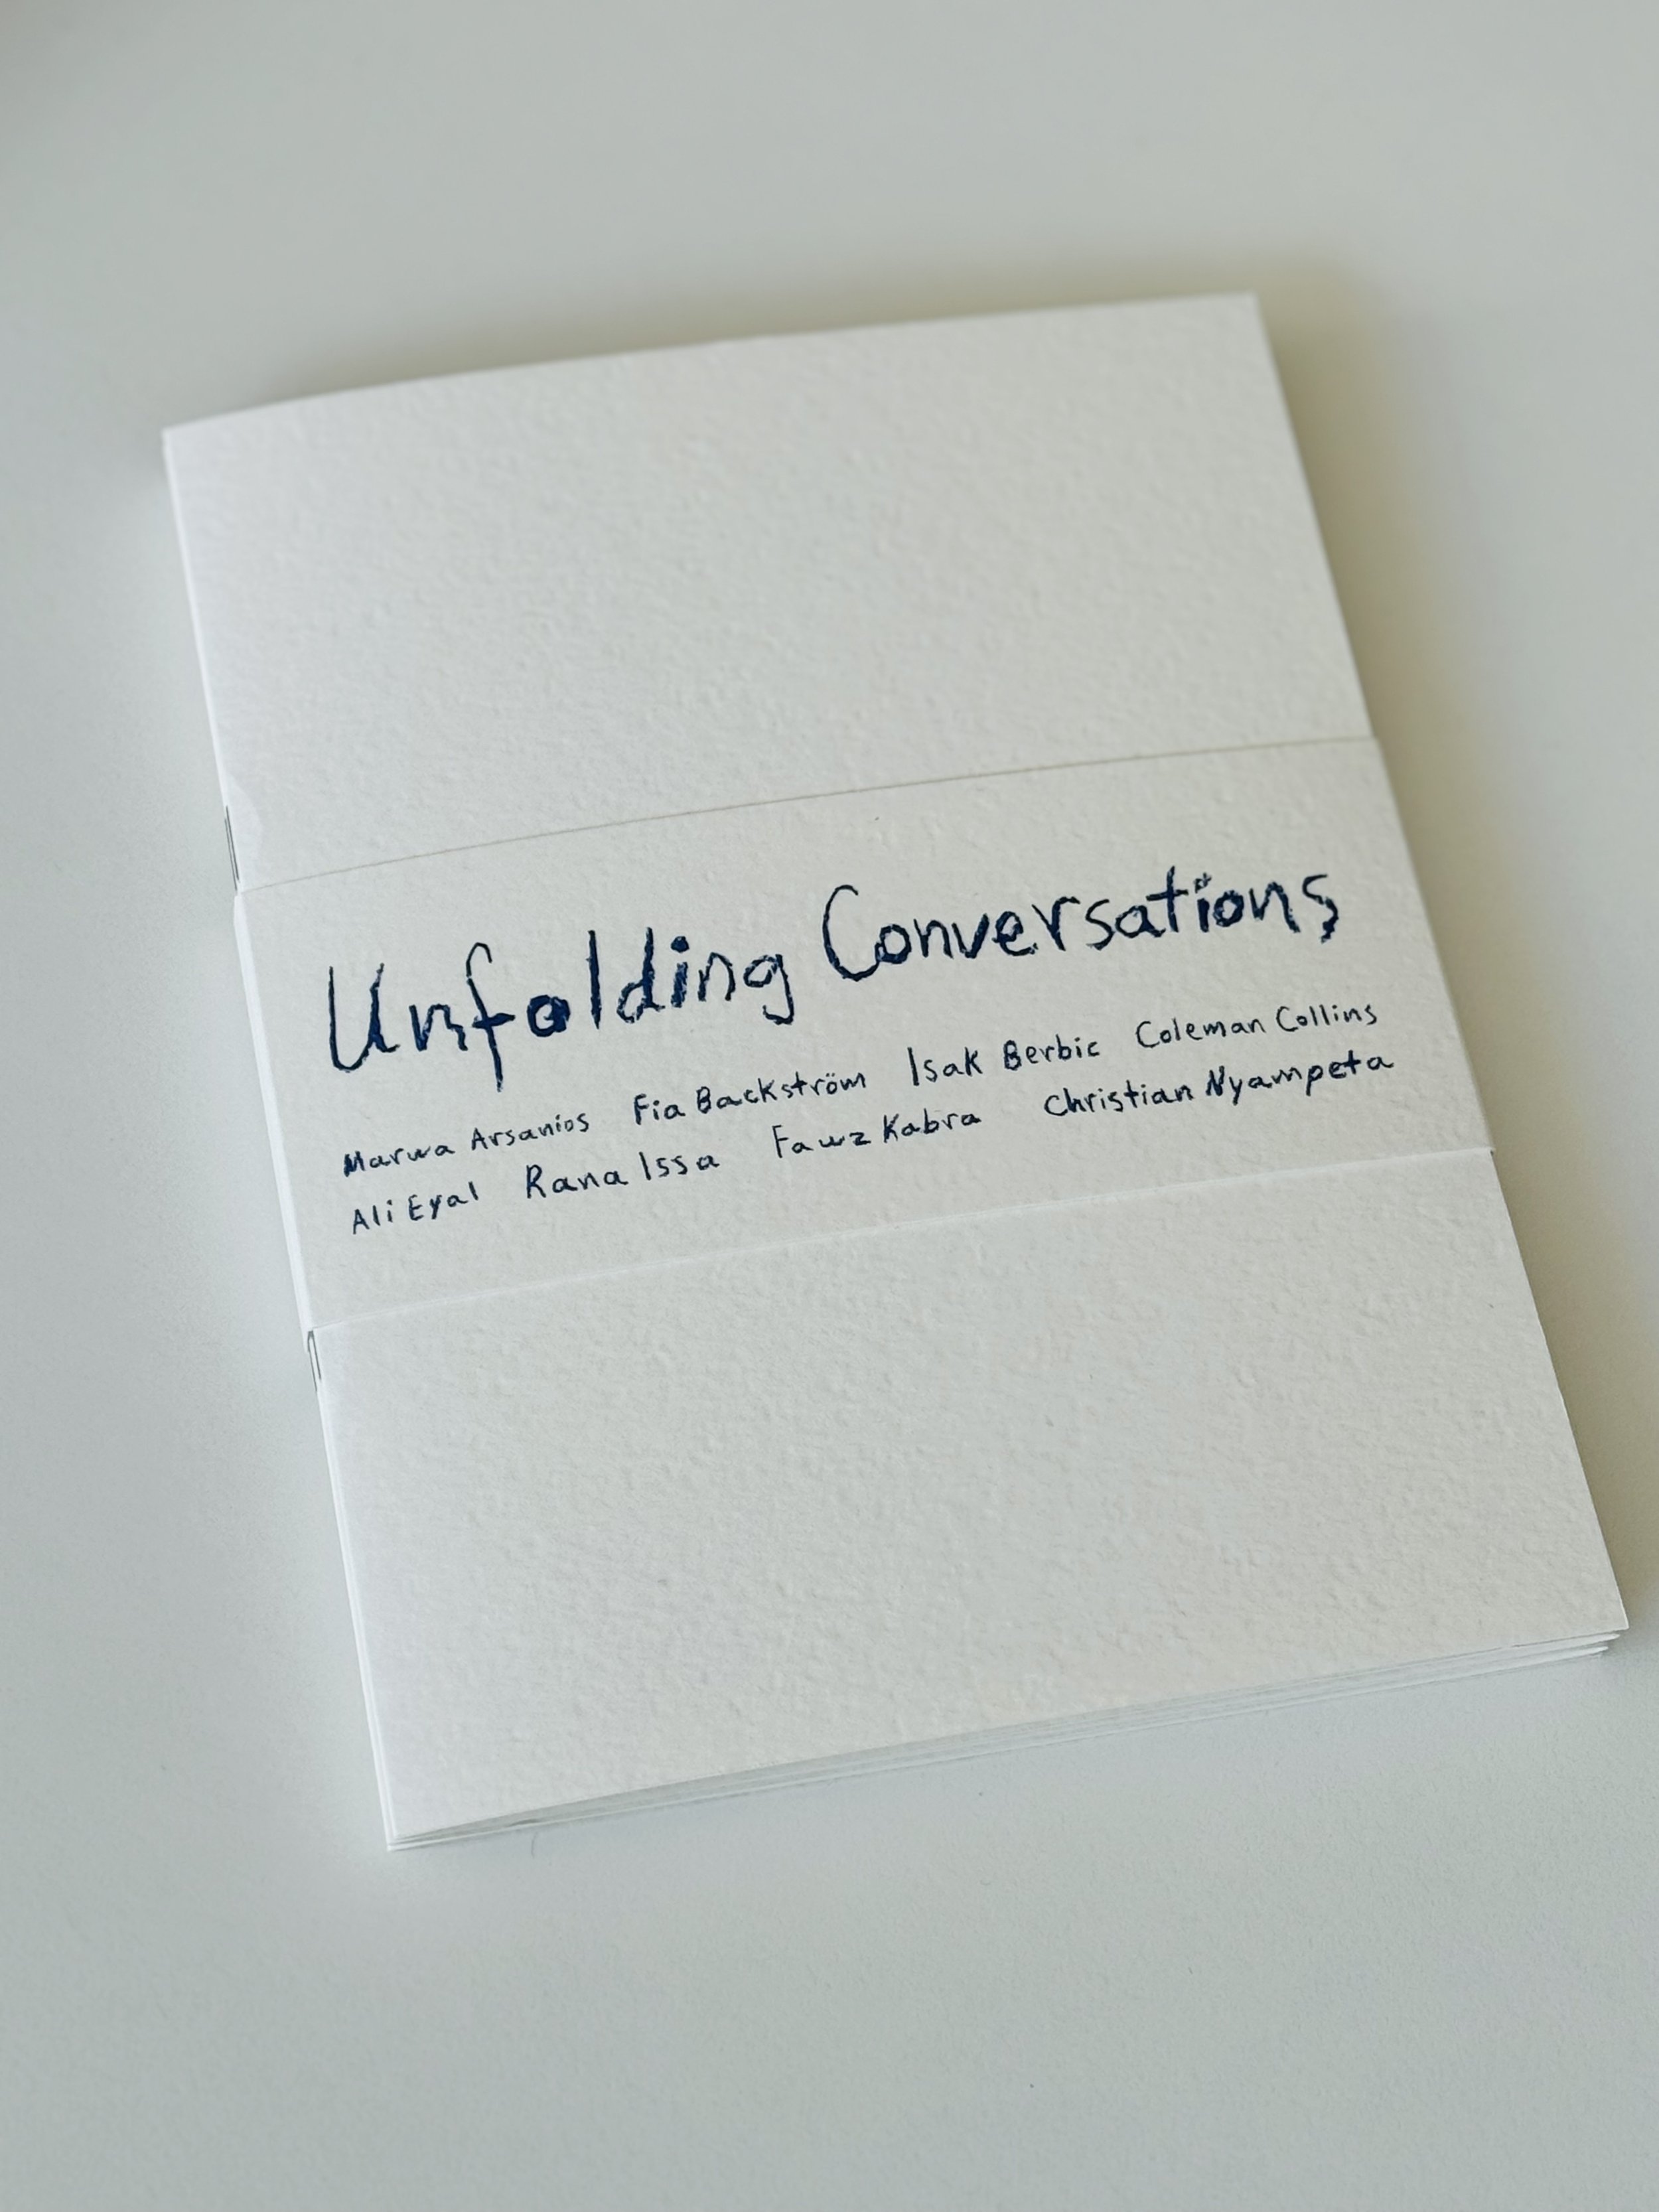 Unfolding Conversations
Marwa Arsanios Fia Backström Isak Berbic Coleman Collins
Ali Eyal Rana Issa Fawz Kabra Christian Nyampeta